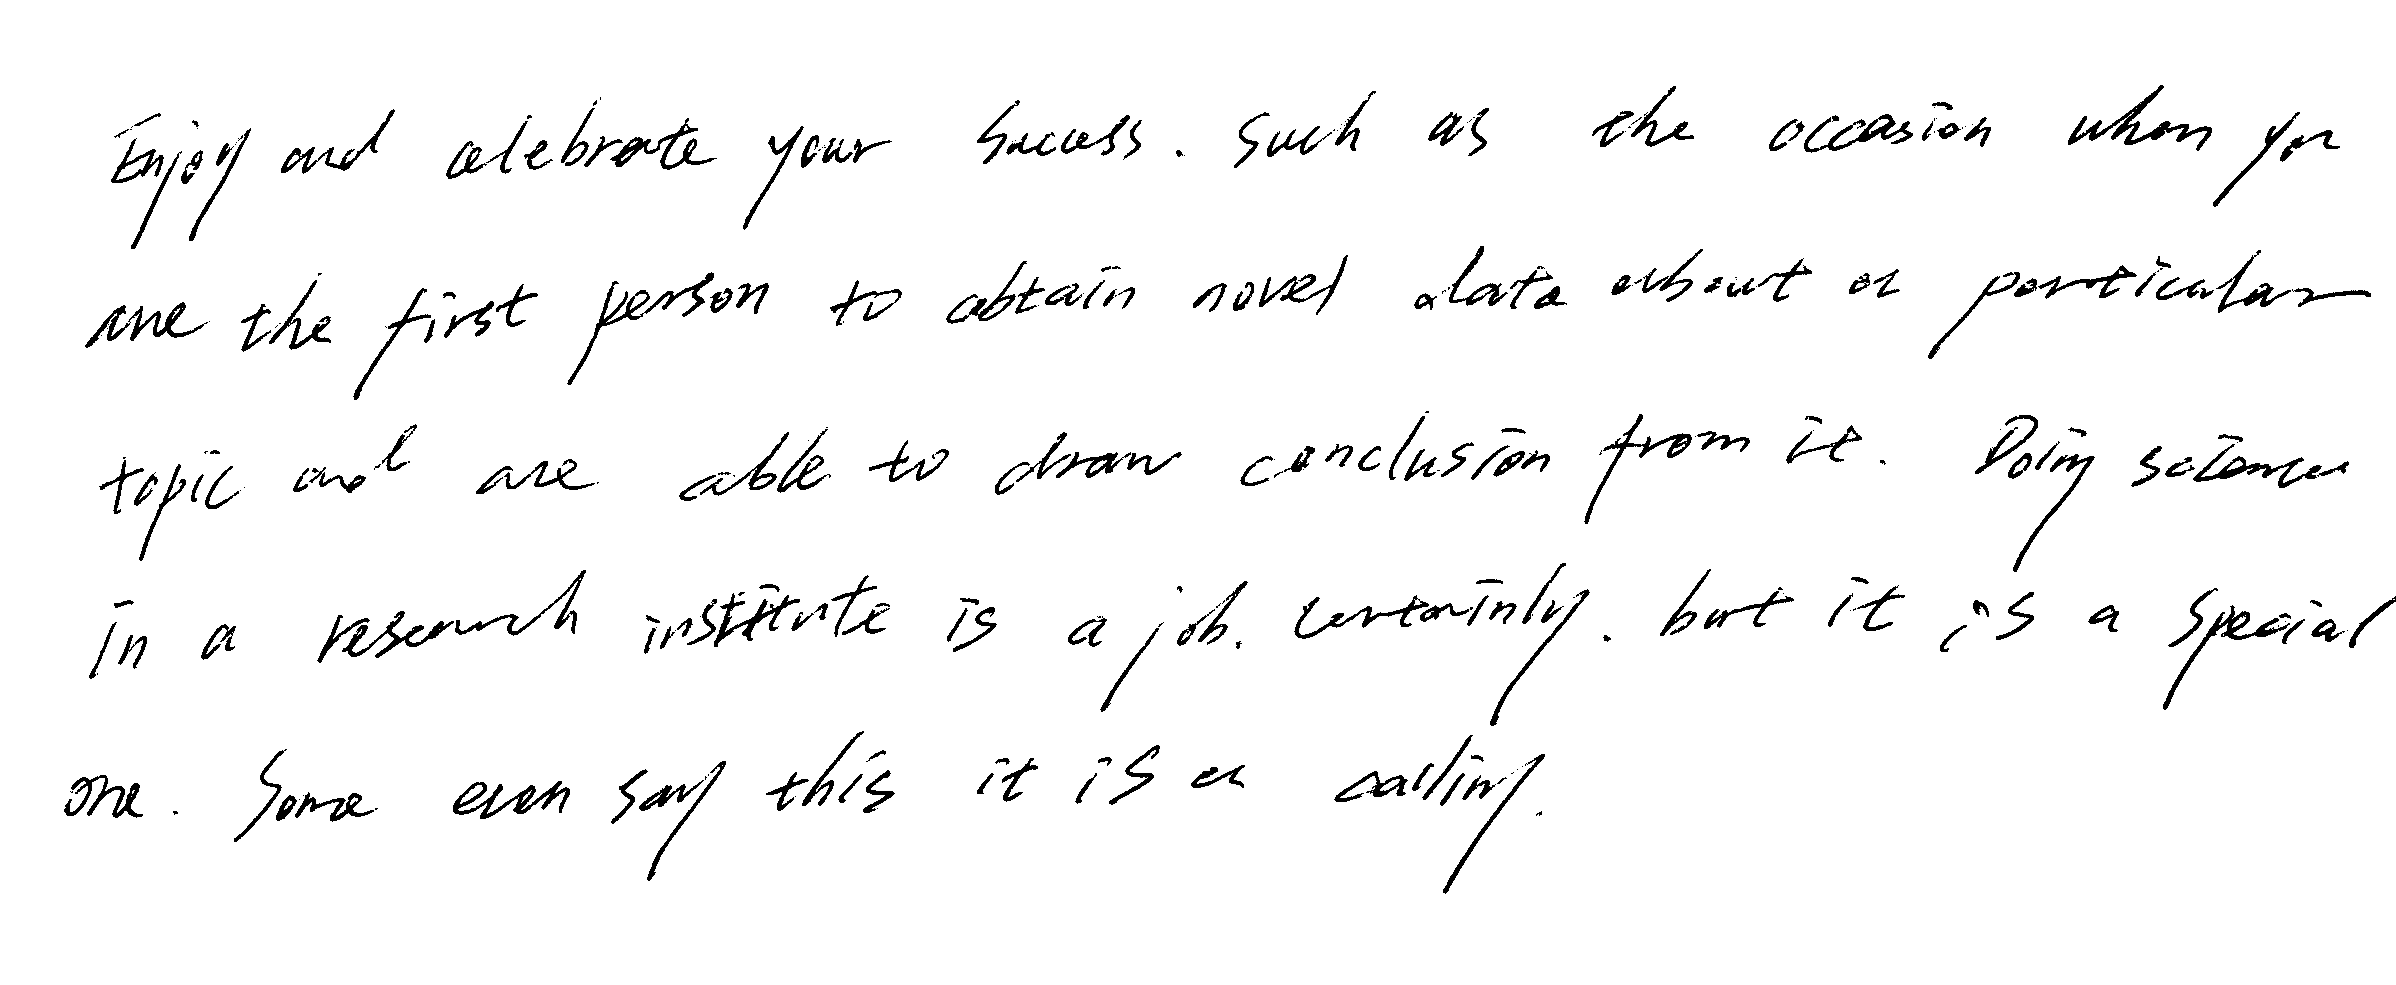 Enjoy and celebrate your success. Such as the occasion when you
are the first person to obtain novel data about a particular
topic and are able to draw conclusion from it. Doing science
in a research institute is a job. certainly. but it is a special
one. Some even say this it is a calling.